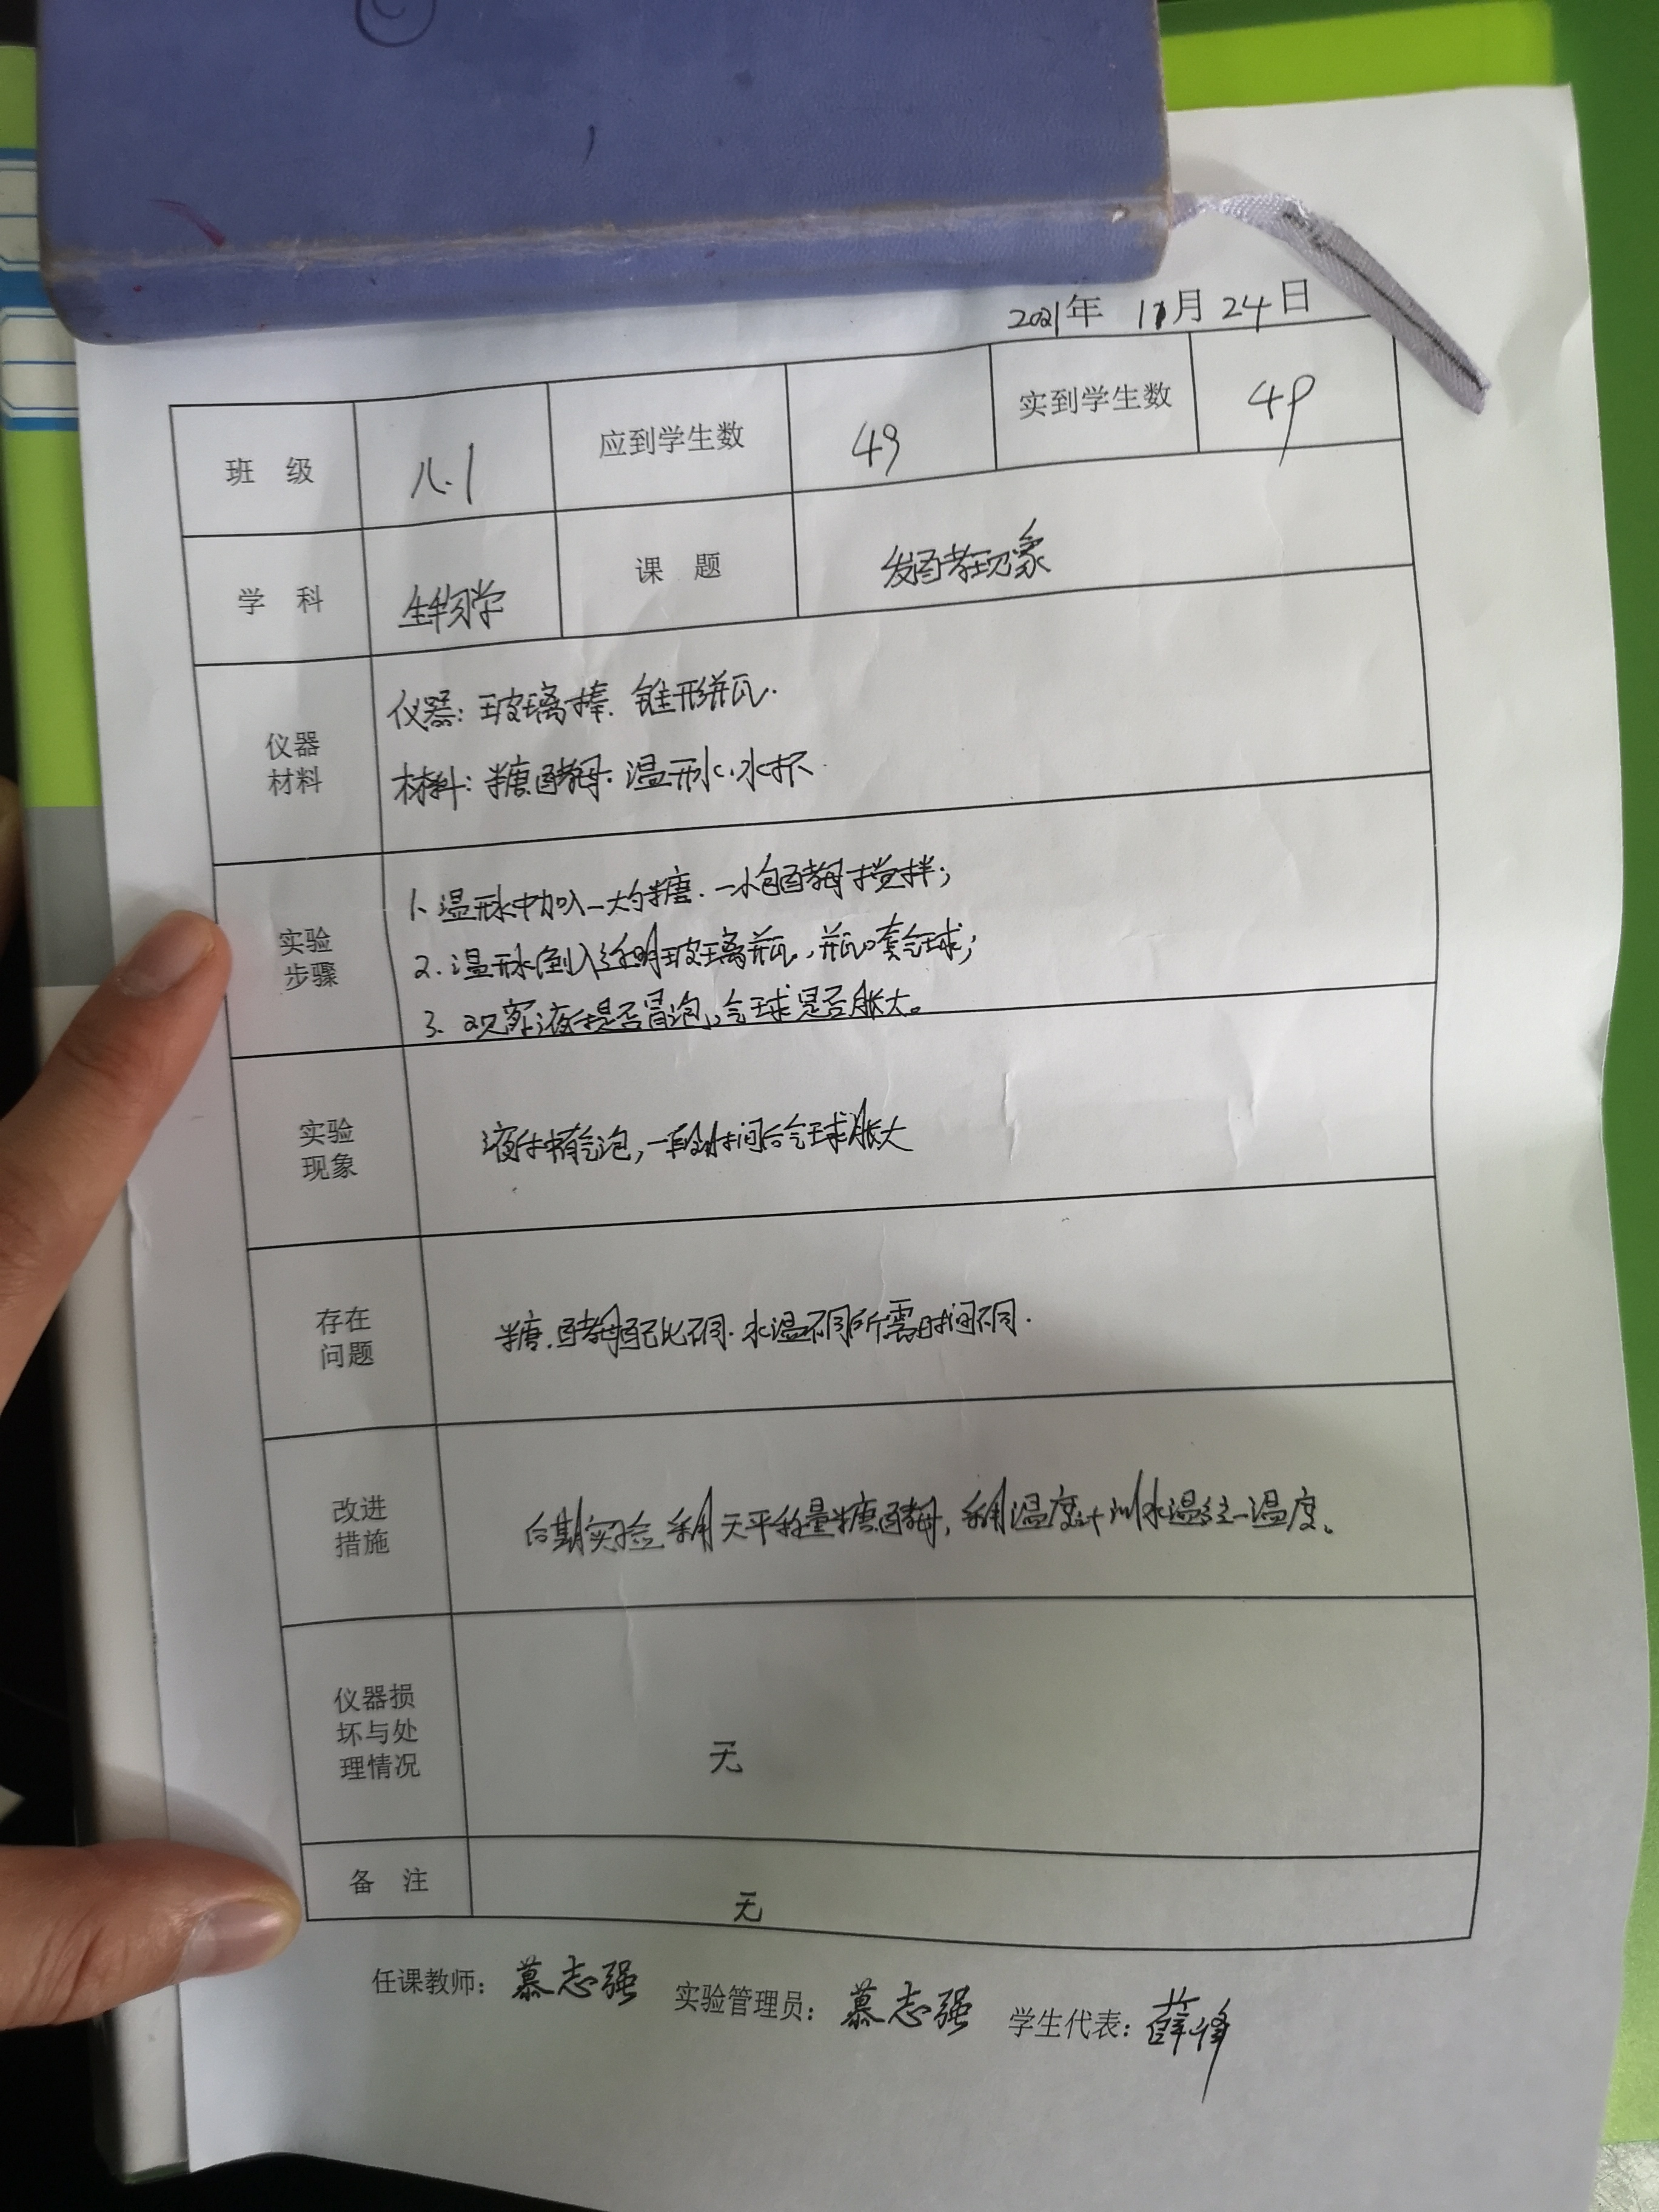 2021年 11月 24日
班 级 八.1 应到学生数 49 实到学生数 49
学 科 生物学 课 题 发酵现象
仪器 材料
仪器: 玻璃棒. 锥形瓶.
材料: 糖.酵母. 温开水. 水杯.
实验 步骤
1. 温开水中加入一大勺糖. 一小包酵母搅拌;
2. 温开水倒入透明玻璃瓶, 瓶口套气球;
3. 观察液体是否冒泡, 气球是否胀大。
实验 现象
液体中有气泡, 一段时间后气球胀大
存在 问题
糖.酵母配比不同. 水温不同所需时间不同.
改进 措施
后期实验利用天平称量糖.酵母, 利用温度计 水温统一温度。
仪器损 坏与处 理情况
无
备 注 无
任课教师: 慕志强 实验管理员: 慕志强 学生代表: 薛